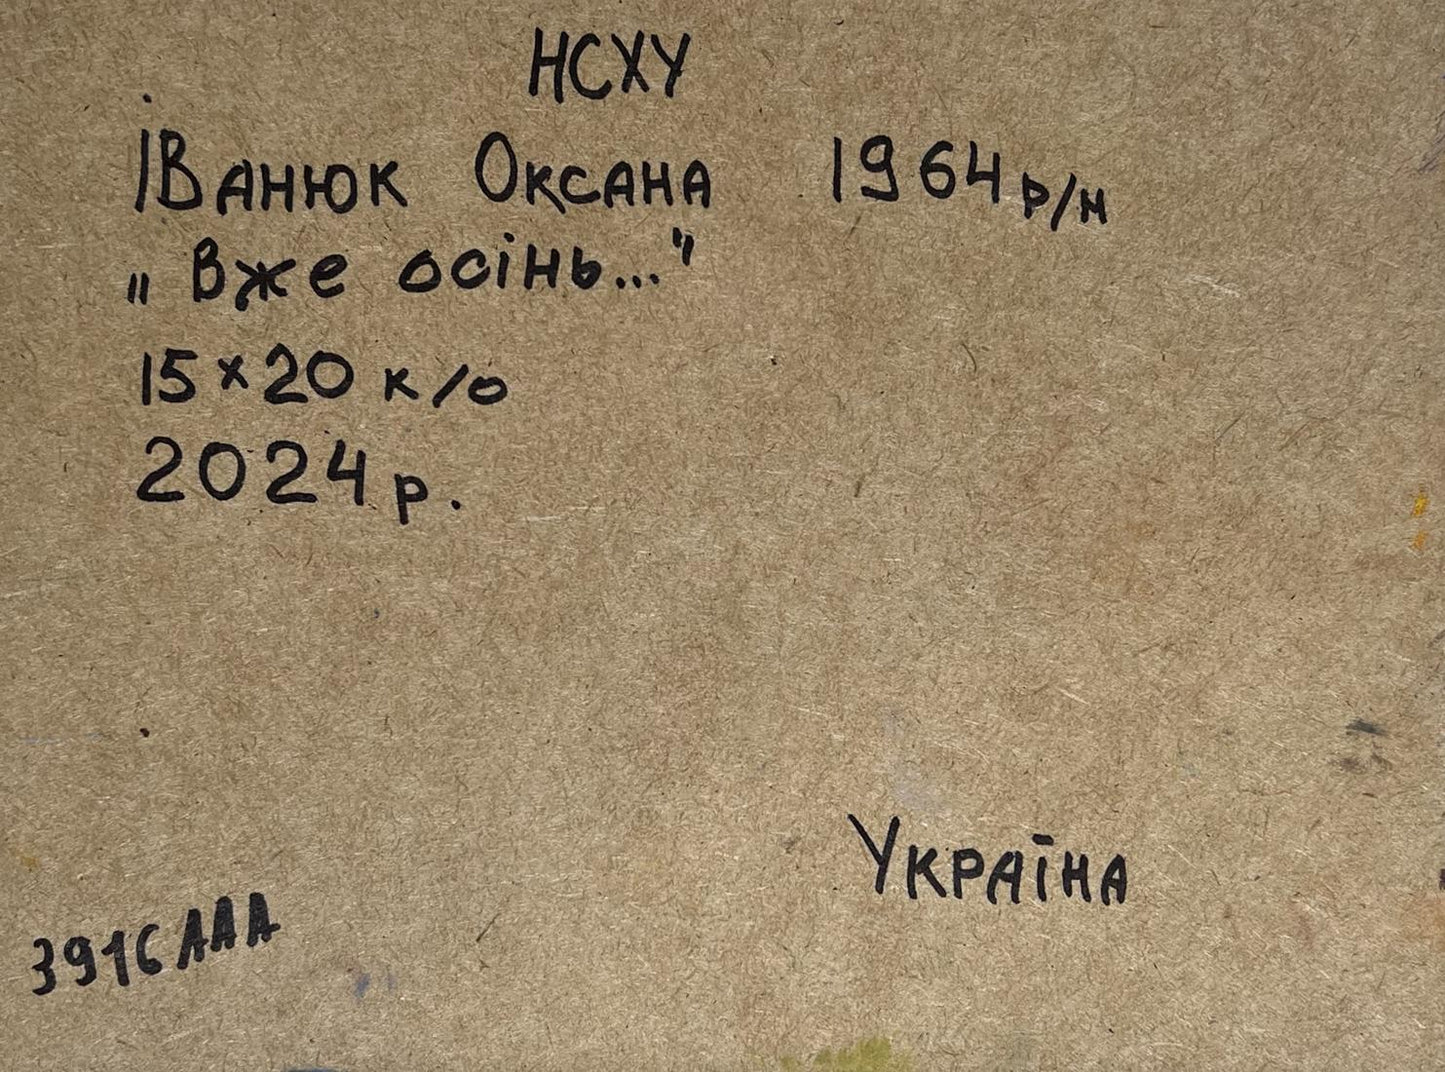 НСХУ
Іванюк Оксана 1964 р/н
„Вже осінь..."
15×20 к/о
2024 р.
Україна
3916 ААА